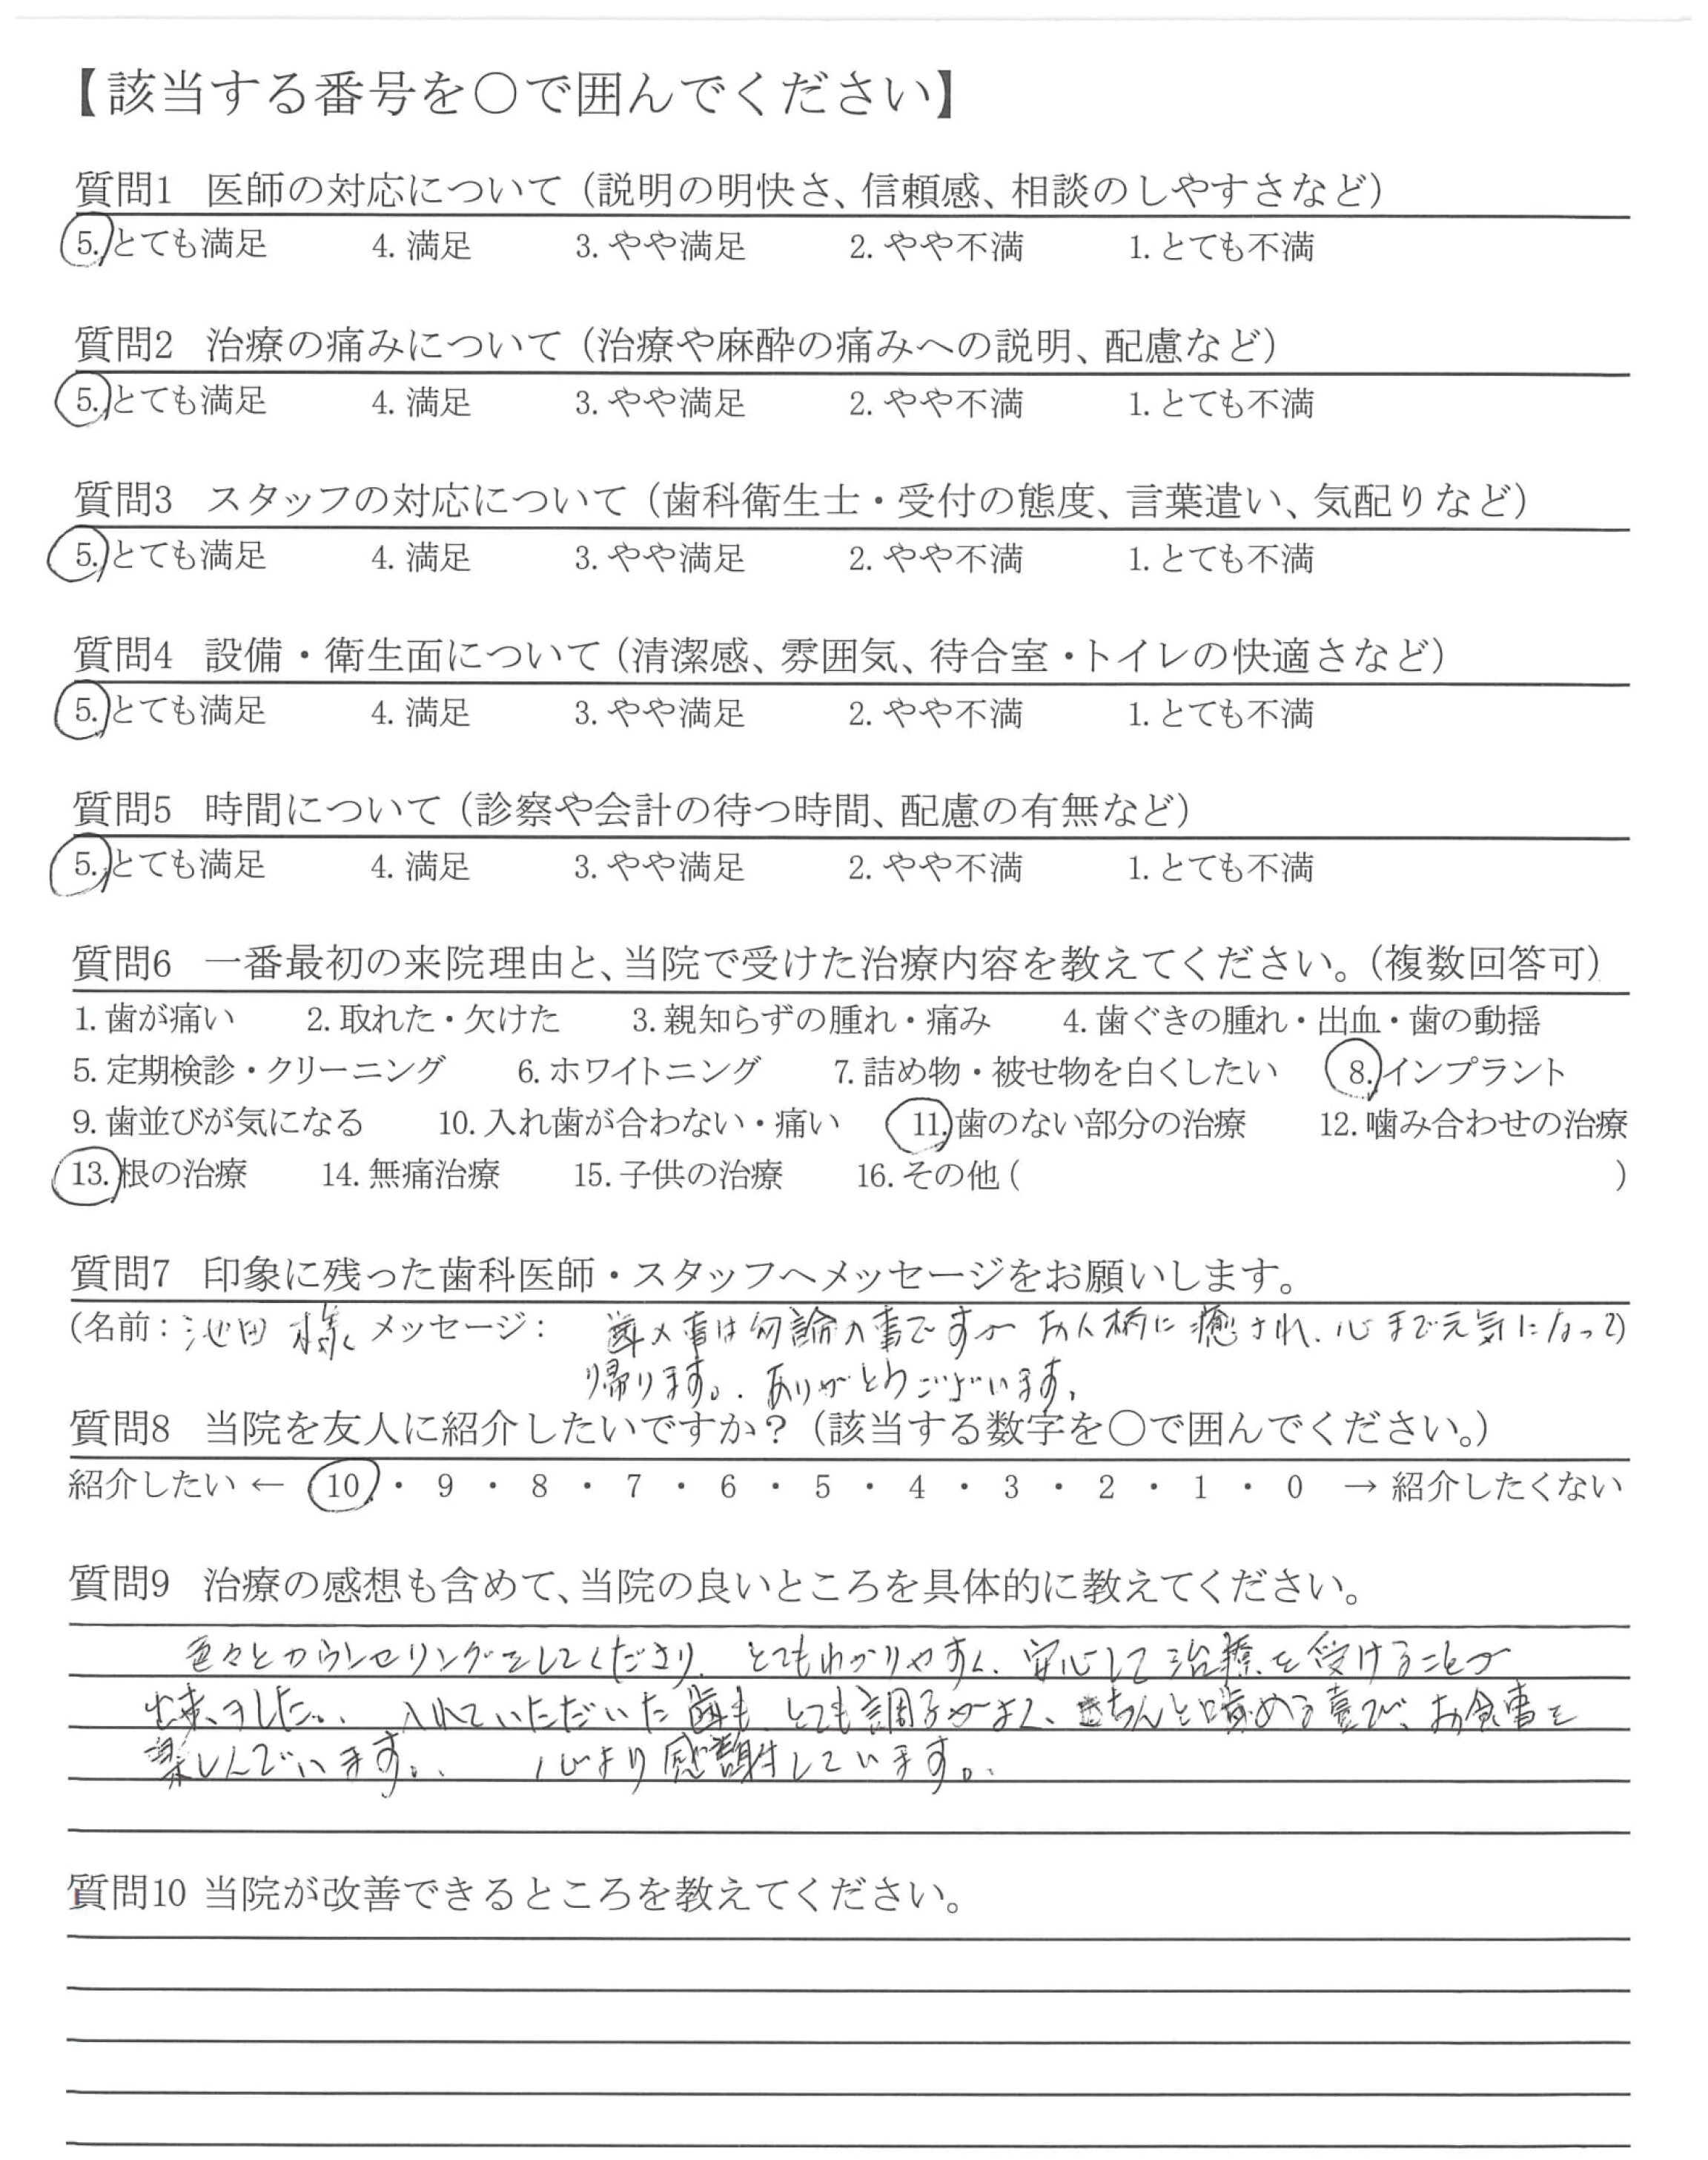 【該当する番号を〇で囲んでください】
質問1 医師の対応について（説明の明快さ、信頼感、相談のしやすさなど）
5. とても満足 4. 満足 3. やや満足 2. やや不満 1. とても不満
質問2 治療の痛みについて（治療や麻酔の痛みへの説明、配慮など）
5. とても満足 4. 満足 3. やや満足 2. やや不満 1. とても不満
質問3 スタッフの対応について（歯科衛生士・受付の態度、言葉遣い、気配りなど）
5. とても満足 4. 満足 3. やや満足 2. やや不満 1. とても不満
質問4 設備・衛生面について（清潔感、雰囲気、待合室・トイレの快適さなど）
5. とても満足 4. 満足 3. やや満足 2. やや不満 1. とても不満
質問5 時間について（診察や会計の待つ時間、配慮の有無など）
5. とても満足 4. 満足 3. やや満足 2. やや不満 1. とても不満
質問6 一番最初の来院理由と、当院で受けた治療内容を教えてください。（複数回答可）
1. 歯が痛い 2. 取れた・欠けた 3. 親知らずの腫れ・痛み 4. 歯ぐきの腫れ・出血・歯の動揺
5. 定期検診・クリーニング 6. ホワイトニング 7. 詰め物・被せ物を白くしたい 8. インプラント
9. 歯並びが気になる 10. 入れ歯が合わない・痛い 11. 歯のない部分の治療 12. 噛み合わせの治療
13. 根の治療 14. 無痛治療 15. 子供の治療 16. その他（ ）
質問7 印象に残った歯科医師・スタッフへメッセージをお願いします。
（名前：池田 様 メッセージ： 歯の事は勿論の事ですが お人柄に癒され、心まで元気になって）
帰ります。ありがとうございます。
質問8 当院を友人に紹介したいですか？（該当する数字を〇で囲んでください。）
紹介したい ← 10 ・ 9 ・ 8 ・ 7 ・ 6 ・ 5 ・ 4 ・ 3 ・ 2 ・ 1 ・ 0 → 紹介したくない
質問9 治療の感想も含めて、当院の良いところを具体的に教えてください。
色々とカウンセリングをしてくださり、とてもわかりやすく、安心して治療を受けることが
出来ました。入れていただいた歯も とても調子がよく、きちんと噛める喜びで、お食事を
楽しんでいます。心より感謝しています。
質問10 当院が改善できるところを教えてください。